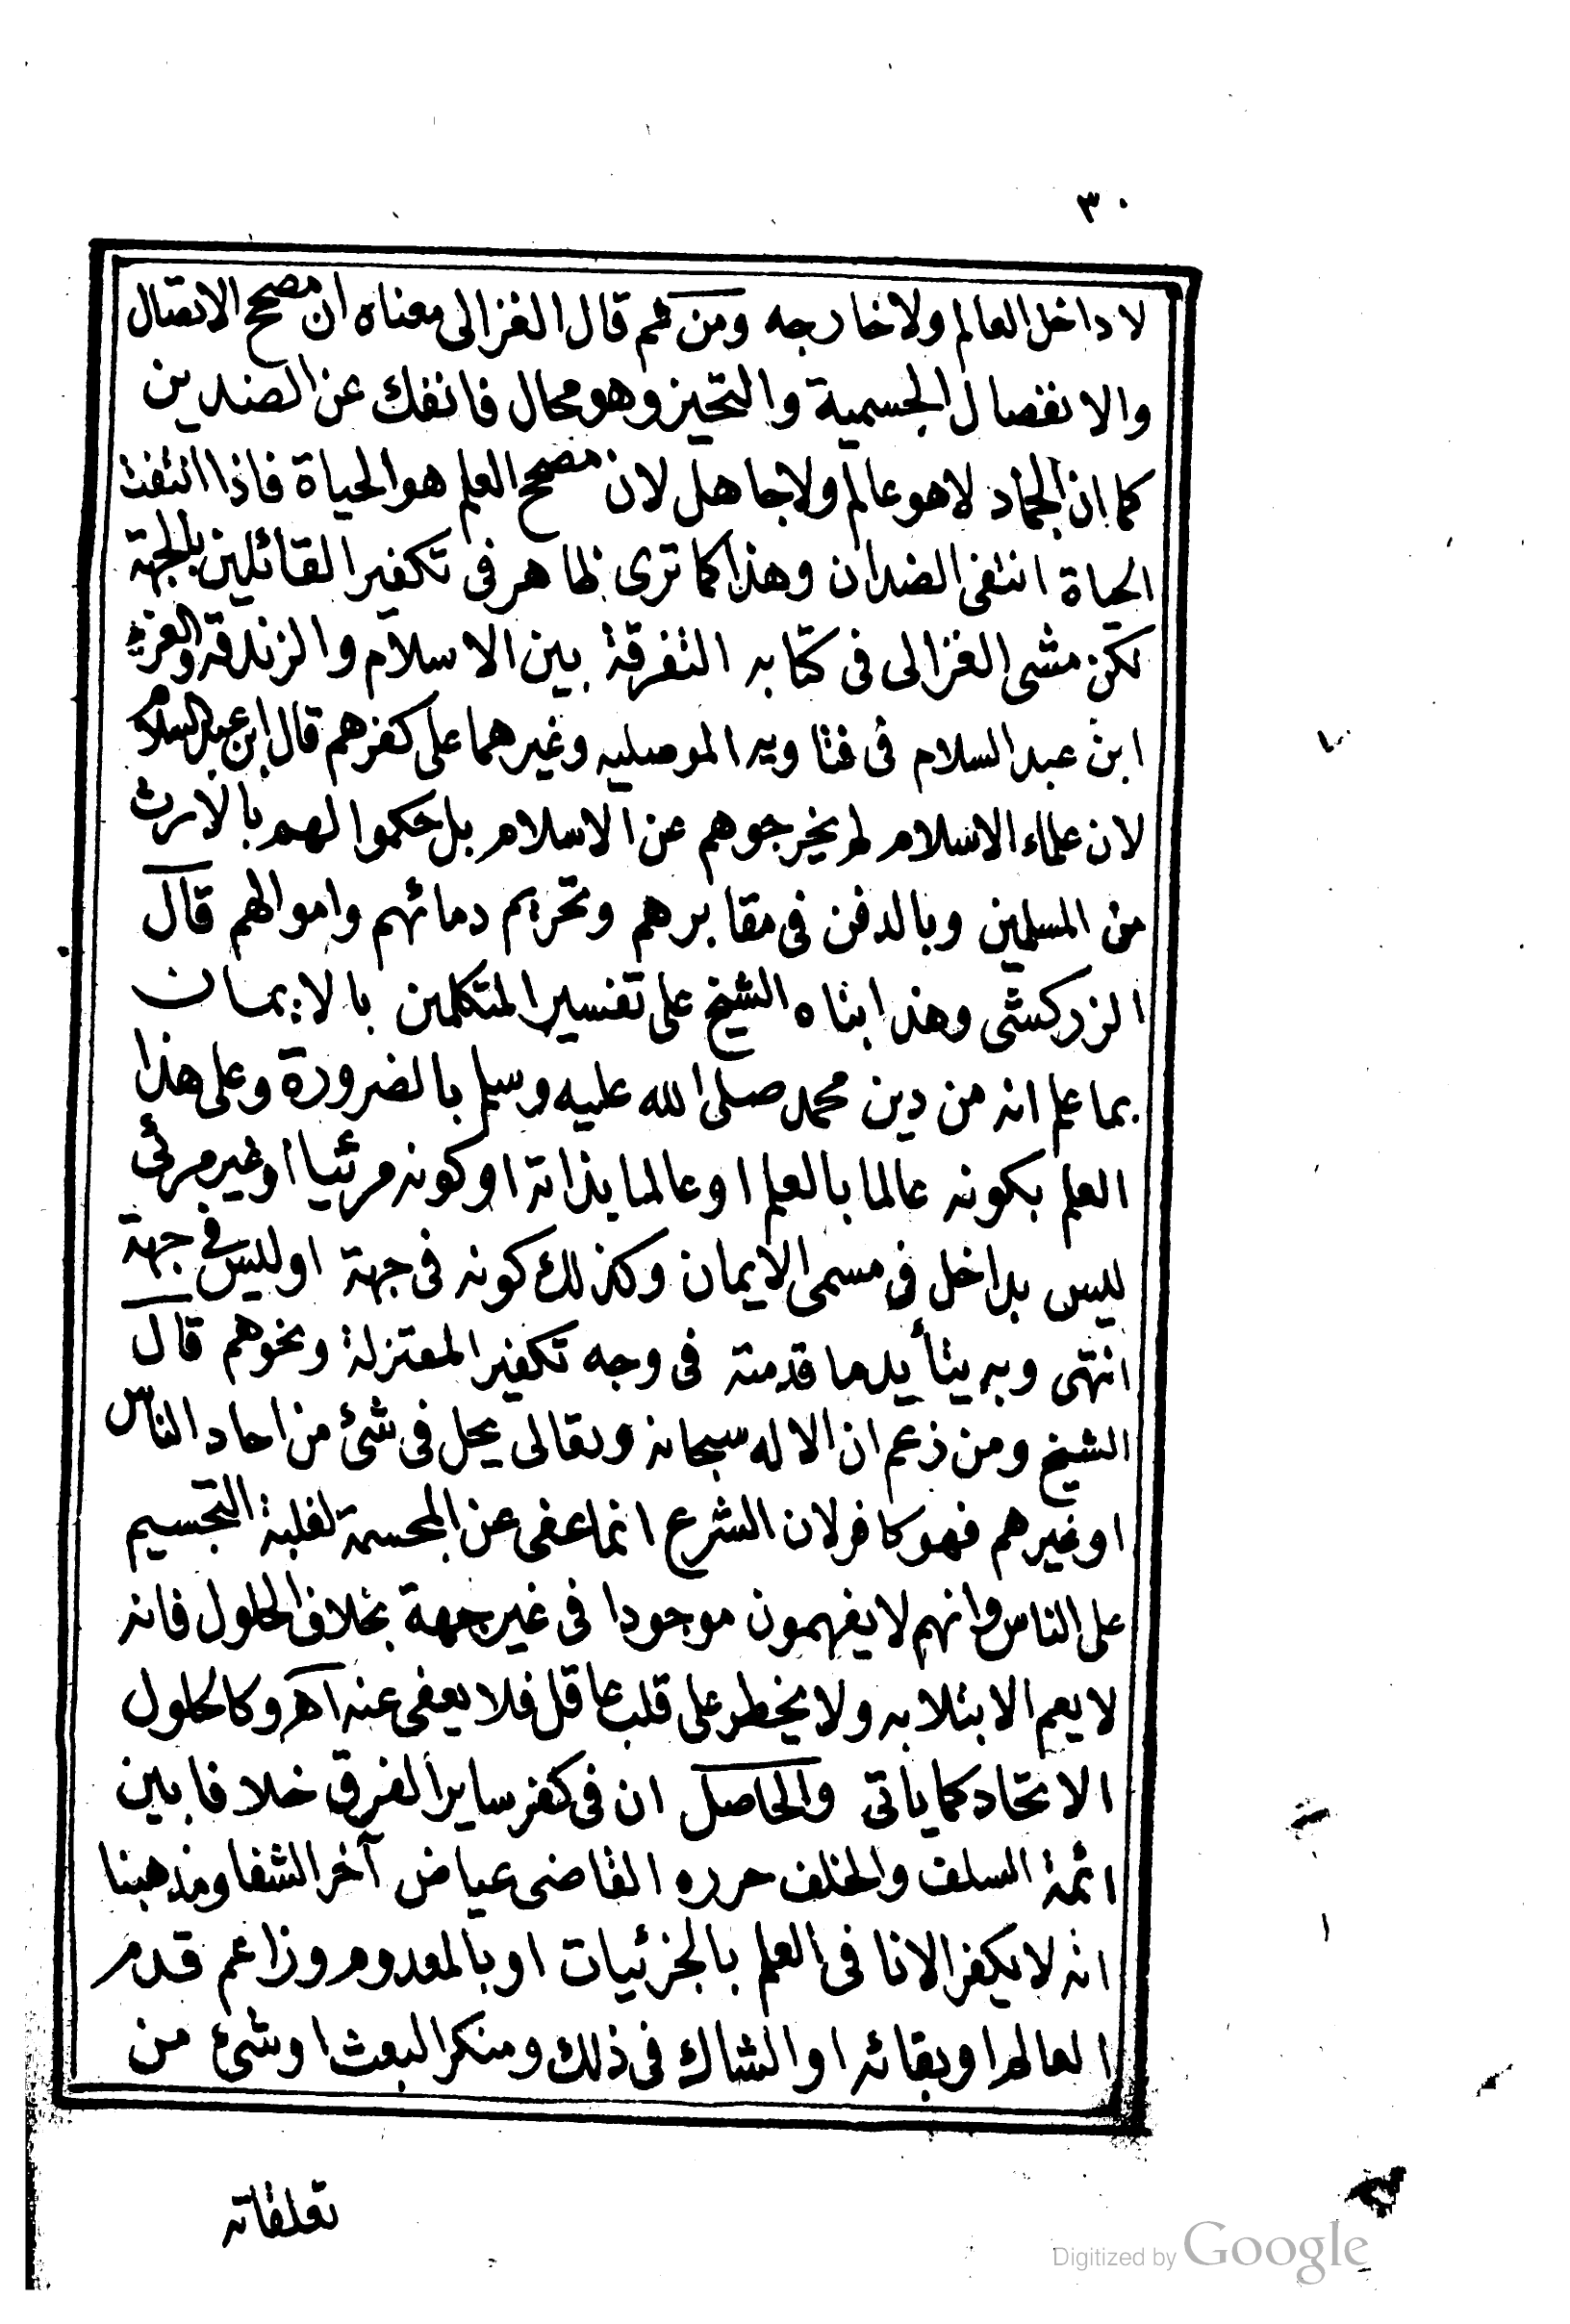 ٣٠
لا داخل العالم ولا خارجه ومن ثم قال الغزالى معناه ان مصحح الاتصال
والانفصال الجسمية والتحيز وهو محال فانفك عن الضدين
كما ان الجماد لا هو عالم ولا جاهل لان مصحح العلم هو الحياة فاذا انتفت
الحياة انتفى الضدان وهذا كما ترى ظاهر فى تكفير القائلين بالجهة
لكن مشى الغزالى فى كتابه التفرقة بين الاسلام والزندقة والعز
ابن عبد السلام فى فتاويه الموصليه وغيرهما على كفرهم قال ابن عبد السلام
لان علماء الاسلام لم يخرجوهم عن الاسلام بل حكموا لهم بالارث
من المسلمين وبالدفن فى مقابرهم وتحريم دمائهم واموالهم قال
الزركشى وهذا بناه الشيخ على تفسير المتكلمين بالايمان
بما علم انه من دين محمد صلى الله عليه وسلم بالضرورة وعلى هذا
العلم بكونه عالما بالعلم او عالما بذاته او كونه مرئيا او غير مرئى
ليس بداخل فى مسمى الايمان وكذلك كونه فى جهة او ليس فى جهة
انتهى وبه يتأيد ما قدمته فى وجه تكفير المعتزلة ونحوهم قال
الشيخ ومن زعم ان الاله سبحانه وتعالى يحل فى شئ من احاد الناس
او غيرهم فهو كافر لان الشرع انما عفى عن المجسمة لغلبة التجسيم
على الناس وانهم لا يفهمون موجودا فى غير جهة بخلاف الحلول فانه
لا يعم الابتلا به ولا يخطر على قلب عاقل فلا يعفى عنه اهـ وكالحلول
الاتحاد كما يأتى والحاصل ان فى كفر ساير الفرق خلافا بين
ائمة السلف والخلف حرره القاضى عياض آخر الشفا ومذهبنا
انه لا يكفر الا نافى العلم بالجزئيات او بالمعدوم وزاعم قدم
العالم او بقائه او الشاك فى ذلك ومنكر البعث او شئ من
تعلقاته
Digitized by Google